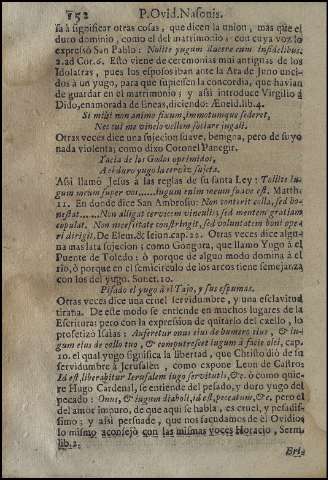 152 P. Ovid. Nasonis.
sa à significar otras cosas, que dicen la union, mas que el
duro dominio, como el del matrimonio: con cuya voz lo
expresó San Pablo: Nolite yugum ducere cum infidelibus.
2. ad Cor. 6. Esto viene de ceremonias mui antiguas de los
Idolatras, pues los esposos iban ante la Ara de Juno unci-
dos à un yugo, para que supiessen la concordia, que havian
de guardar en el matrimonio; y assi introduce Virgilio à
Dido, enamorada de Eneas, diciendo: Æneid. lib. 4.
Si mihi non animo fixum, immotumque sederet,
Nec cui me vinclo vellem sociare jugali.
Otras veces dice una sujecion suave, benigna, pero de suyo
nada violenta; como dixo Coronel Panegir.
Yacia de los Godos oprimidos,
A el duro yugo la cerviz sujeta.
Assi llamò Jesus à las reglas de su santa Ley: Tollite iu-
gum meum super vos,.....iugum enim meum suave est. Matth.
11. En donde dice San Ambrosio: Non conterit colla, sed ho-
nestat......Non alligat cervicem vinculis, sed mentem gratiam
copulat. Non necessitate constringit, sed voluntatem boni ope-
ri dirigit. De Elem. & Ieiun. cap. 22. Otras veces dice algu-
na mas lata sujecion; como Gongora, que llamo Yugo à el
Puente de Toledo: ò porque de alguo modo domina à el
rio, ò porque en el semicirculo de los arcos tiene semejanza
con los del yugo. Sonet. 10.
Pisado el yugo à el Tajo, y sus espumas.
Otras veces dice una cruel servidumbre, y una esclavitud
tirana. De este modo se entiende en muchos lugares de la
Escritura: pero con la expression de quitarlo del cuello, lo
profetizò Isaias: Auferetur onus eius de humero tuo, & iu-
gum eius de collo tuo, & computrescet iugum à facie olei, cap.
10. el qual yugo significa la libertad, que Christo diò de su
servidumbre à Jerusalen, como expone Leon de Castro:
Id est, liberabitur Ierusalem iugo servitutis, &c. ò como quie-
re Hugo Cardenal, se entiende del pesado, y duro yugo del
pecado: Onus, & iugum diaboli, id est, peccatum, &c. pero el
del amor impuro, de que aqui se habla, es cruel, y pesadis-
simo; y assi persuade, que nos sacudamos de èl Ovidio;
lo mismo aconsejò con las mismas voces Horacio, Serm.
lib. 2.
Eri-